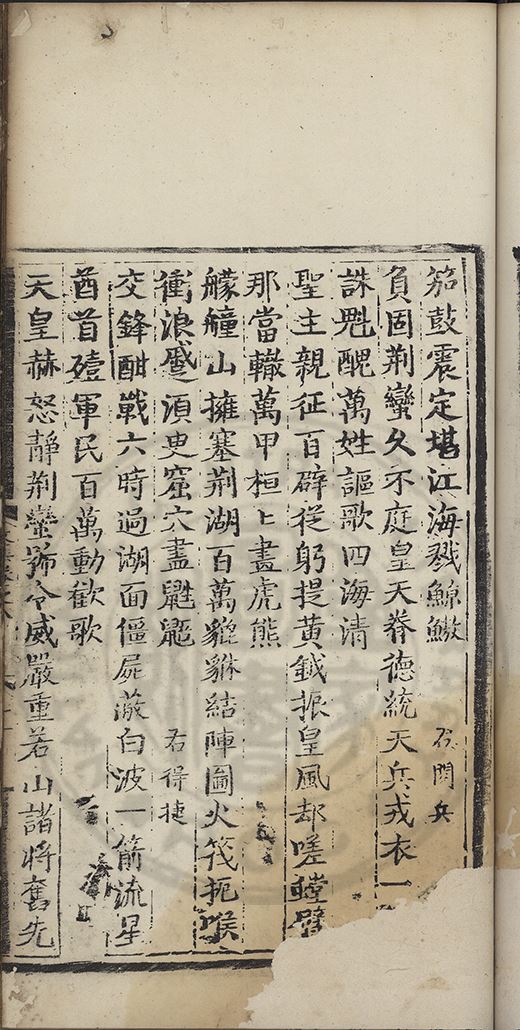 笳鼓震定堪江海戮鯨鱍 右閱兵
負固荆蠻久不庭皇天眷德統天兵戎衣一
誅䰟醜萬姓謳歌四海清
聖主親征百辟從躬提黃鉞振皇風却嗟螳臂
那當轍萬甲桓〻盡虎熊
艨艟山擁塞荆湖百萬貔貅結陣圖火筏扼喉
衝浪蹙湏史窟穴盡鼪鼯 右得捷
交鋒酣戰六時過湖面僵屍蔽白波一箭流星
酋首殪軍民百萬動歡歌
天皇赫怒靜荆蠻號令威嚴重若山諸將奮先